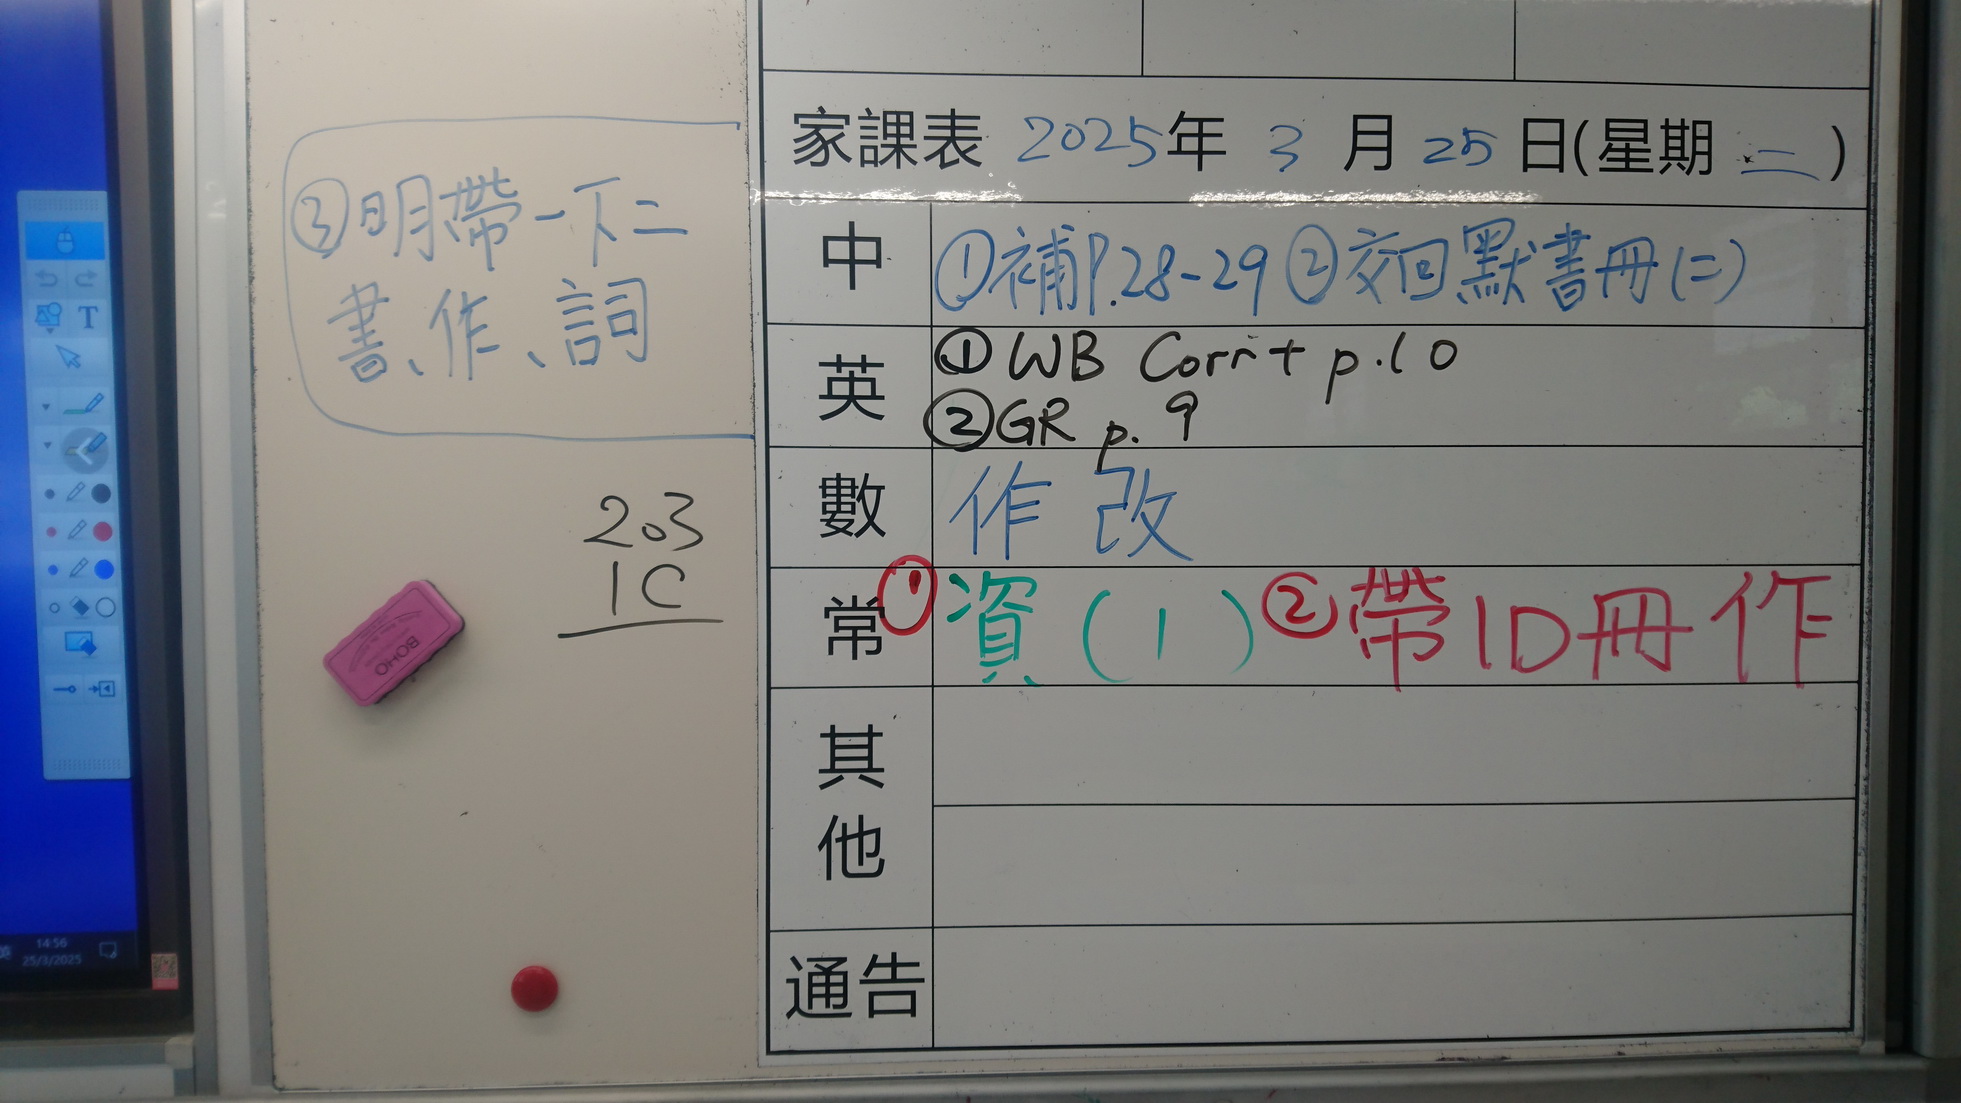 家課表 2025年 3 月 25 日(星期 二)
中 ①補P.28-29 ②交回默書冊(二)
③明帶一下二
書、作、詞
英 ①WB Corr+ p.10
②GR p.9
數 作改
常 ①資(1) ②帶ID冊 作
其他
通告
203
1C
BOHO
T
14:56
25/3/2025